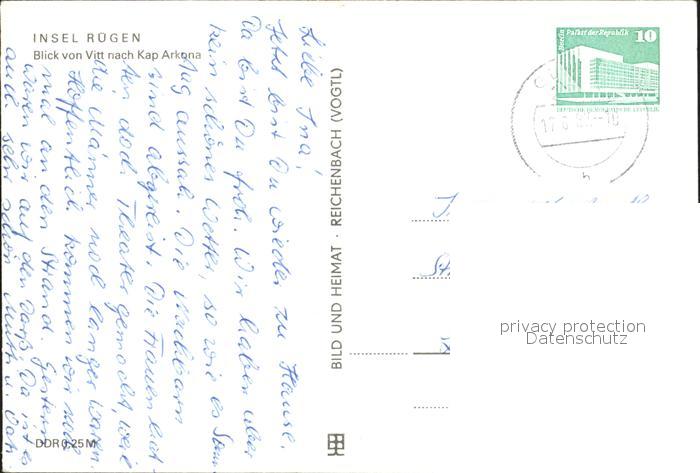 INSEL RÜGEN
Blick von Vitt nach Kap Arkona
Liebe Ina!
Jetzt bist Du wieder zu Hause.
Da bist Du froh. Wir haben aber
kein schönes Wetter, so wie es
aussah. Die Nachbarn
sind abgereist. Die Frauen
doch Theater gemacht, weil
die Männer noch länger waren.
Hoffentlich kommen wir noch
mal an den Strand. Gestern
waren wir auf den Darß. Da ist es
auch sehr schön. u.
DDR 0,25 M
BILD UND HEIMAT · REICHENBACH (VOGTL)
Berlin Palast der Republik
10
DEUTSCHE DEMOKRATISCHE REPUBLIK
privacy protection
Datenschutz